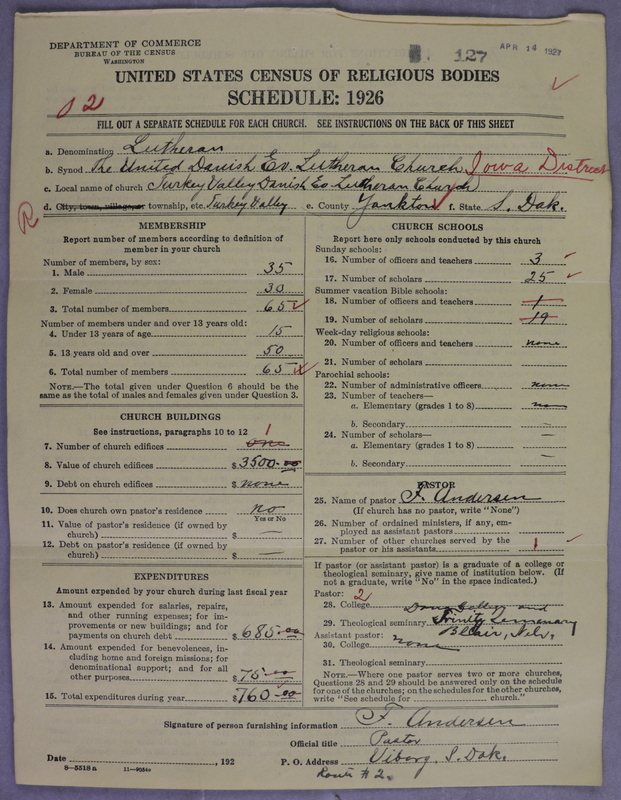 DEPARTMENT OF COMMERCE
BUREAU OF THE CENSUS
WASHINGTON
127
APR 14 1927
UNITED STATES CENSUS OF RELIGIOUS BODIES
SCHEDULE: 1926
02
FILL OUT A SEPARATE SCHEDULE FOR EACH CHURCH. SEE INSTRUCTIONS ON THE BACK OF THIS SHEET
a. Denomination Lutheran
b. Synod The United Danish Ev. Lutheran Church Iowa District
c. Local name of church Turkey Valley Danish Ev Lutheran Church
d. City, town, village, or township, etc. Turkey Valley e. County Yankton f. State S. Dak.
R
MEMBERSHIP
Report number of members according to definition of
member in your church
Number of members, by sex:
1. Male 35
2. Female 30
3. Total number of members 65
Number of members under and over 13 years old:
4. Under 13 years of age 15
5. 13 years old and over 50
6. Total number of members 65
NOTE.—The total given under Question 6 should be
same as the total of males and females given under Question 3.
CHURCH BUILDINGS
See instructions, paragraphs 10 to 12
1
7. Number of church edifices one
8. Value of church edifices $3500.00
9. Debt on church edifices $ none
10. Does church own pastor's residence? no
Yes or No
11. Value of pastor's residence (if owned by
church) $ —
12. Debt on pastor's residence (if owned by
church) $ —
EXPENDITURES
Amount expended by your church during last fiscal year
13. Amount expended for salaries, repairs,
and other running expenses; for im-
provements or new buildings; and for
payments on church debt $685.00
14. Amount expended for benevolences, in-
cluding home and foreign missions; for
denominational support; and for all
other purposes $75.00
15. Total expenditures during year $760.00
CHURCH SCHOOLS
Report here only schools conducted by this church
Sunday schools:
16. Number of officers and teachers 3
17. Number of scholars 25
Summer vacation Bible schools:
18. Number of officers and teachers 1
19. Number of scholars 19
Week-day religious schools:
20. Number of officers and teachers none
21. Number of scholars
Parochial schools:
22. Number of administrative officers none
23. Number of teachers—
a. Elementary (grades 1 to 8) none
b. Secondary —
24. Number of scholars—
a. Elementary (grades 1 to 8) —
b. Secondary —
PASTOR
25. Name of pastor F. Andersen
(If church has no pastor, write "None")
26. Number of ordained ministers, if any, em-
ployed as assistant pastors
27. Number of other churches served by the
pastor or his assistants 1
If pastor (or assistant pastor) is a graduate of a college or
theological seminary, give name of institution below. (If
not a graduate, write "No" in the space indicated.)
Pastor: 2
28. College Dana College and
29. Theological seminary Trinity Seminary
Assistant pastor: Blair, Nebr.
30. College none
31. Theological seminary
NOTE.—Where one pastor serves two or more churches,
Questions 28 and 29 should be answered only on the schedule
for one of the churches; on the schedules for the other churches,
write "See schedule for church."
Signature of person furnishing information F. Andersen
Official title Pastor
Date , 192 P. O. Address Viborg, S. Dak.
Route #2.
8—5518a 11—9054